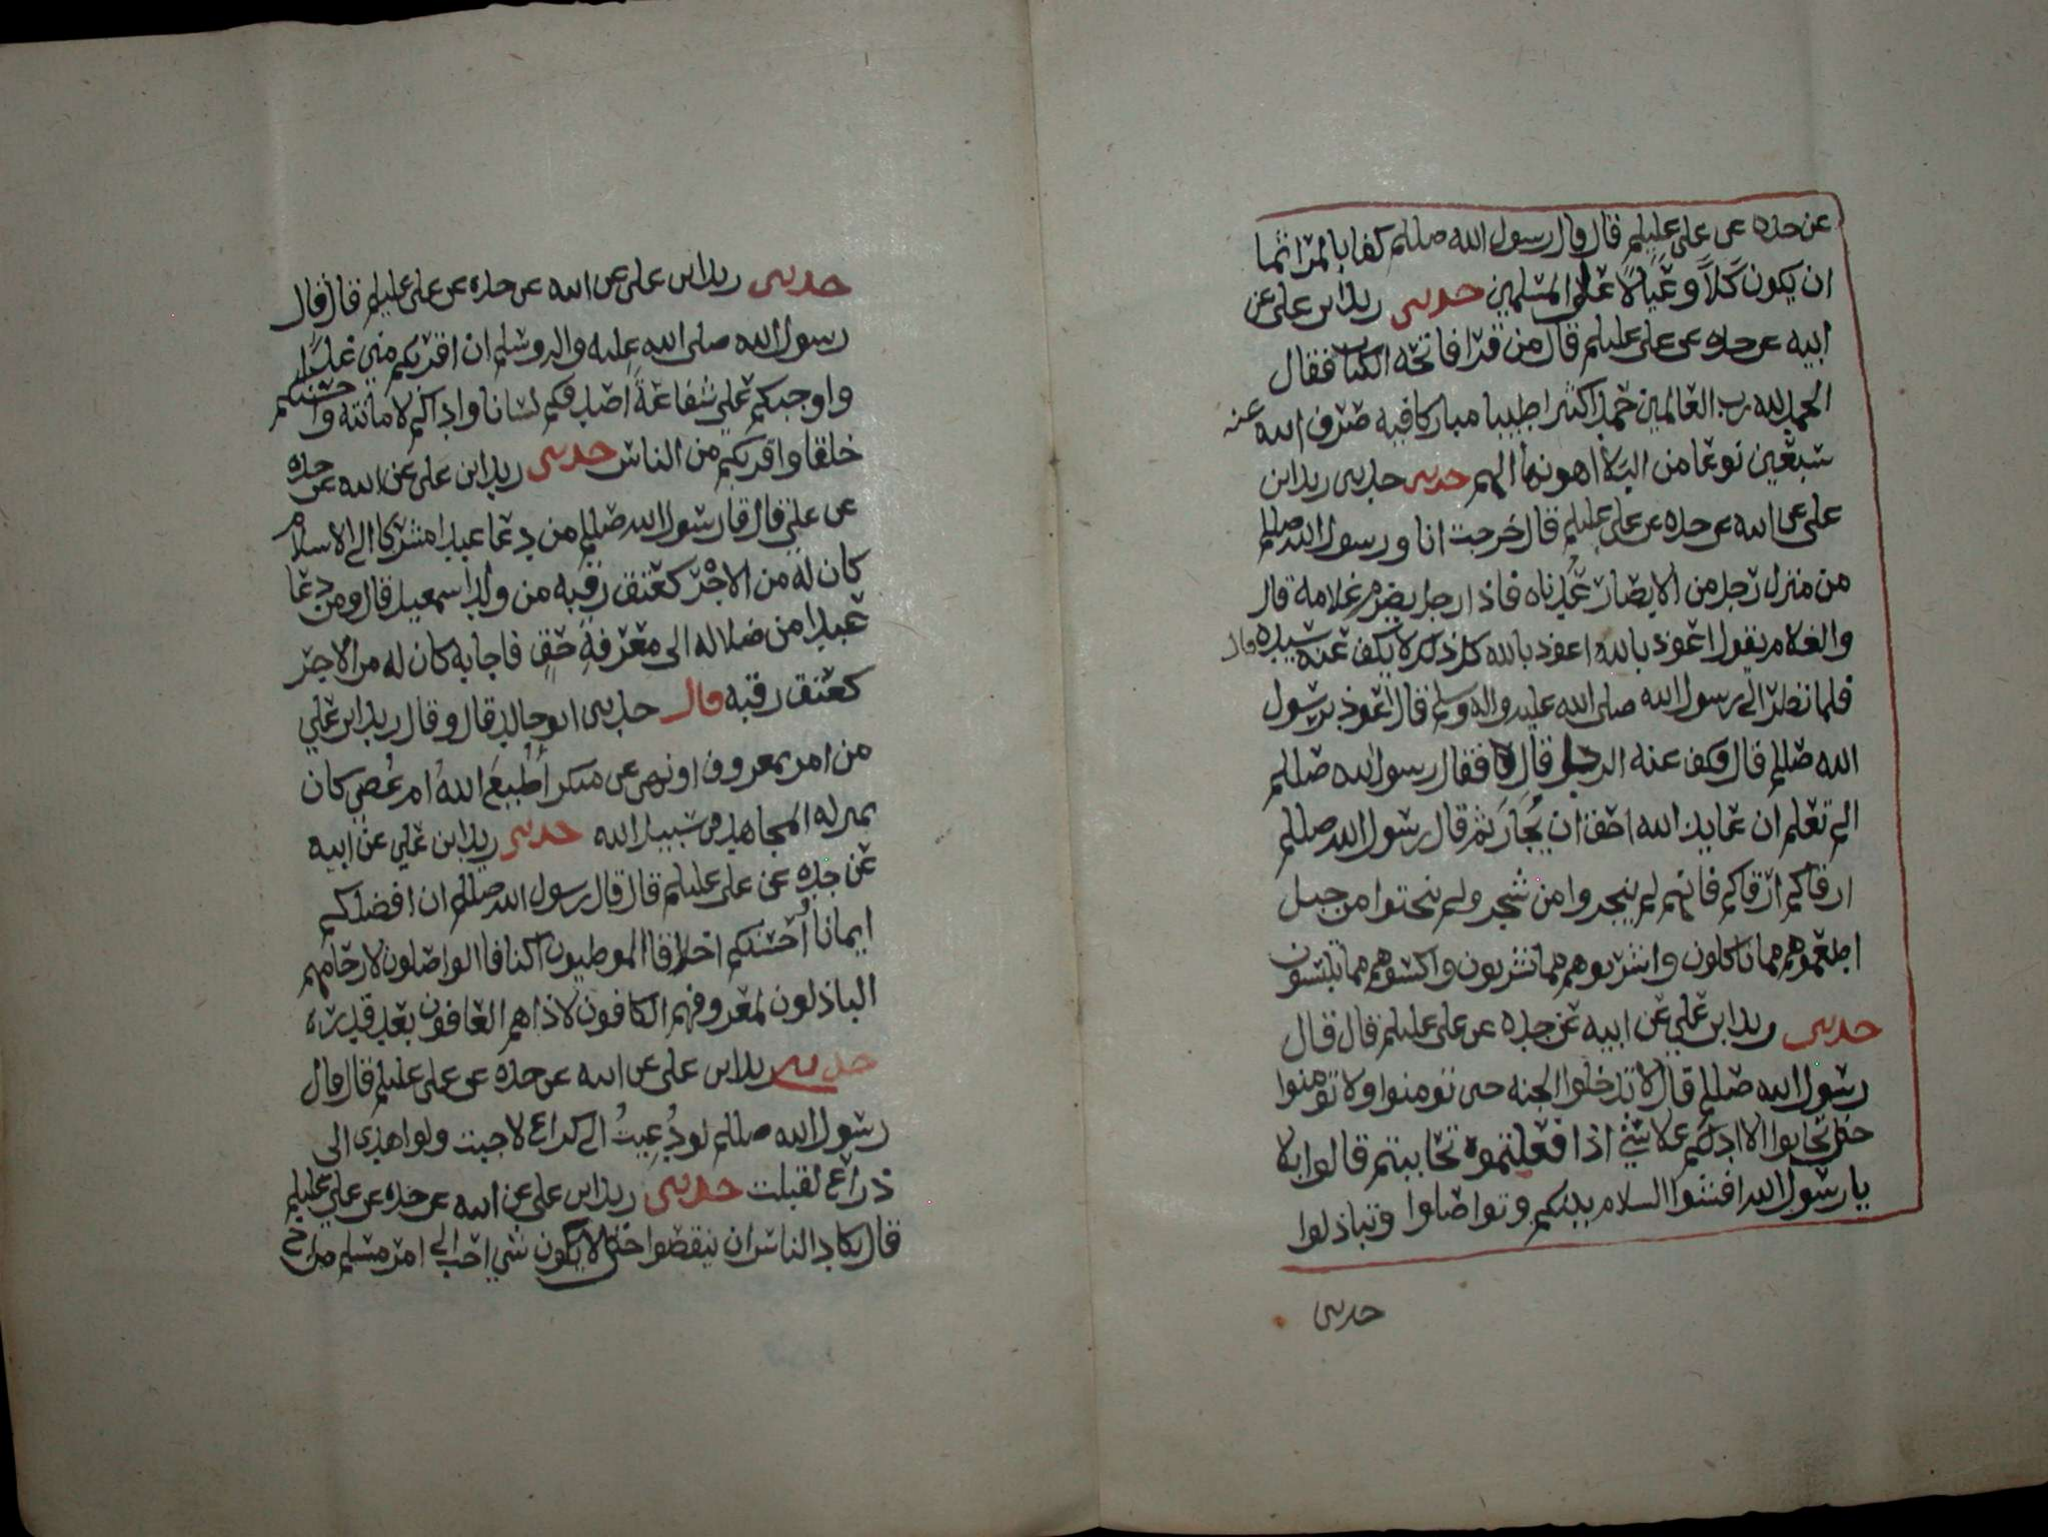 عن جده عن علي عليلم قال قال رسول الله صللم كفا بالمرا اثما
ان يكون كلاً وعيالاً على المسلمين حدثني زيد ابن علي عن
ابيه عن جده عن علي عليلم قال من قرا فاتحه الكتاب فقال
الحمد لله رب العالمين حمدا كثيرا طيبا مباركا فيه صرف الله عنه
سبعين نوعا من البلا اهونها الهم حدثني حدثني زيد ابن
علي عن ابيه عن جده عن علي عليلم قال خرجت انا ورسول الله صللم
من منزل رجل من الانصار عدناه فاذا رجل يضرب غلامه قال
والغلام يقول اعوذ بالله اعوذ بالله كل ذلك لا يكف عنه سيده قال
فلما نظر الى رسول الله صلى الله عليه واله وسلم قال اعوذ برسول
الله صللم قال وكف عنه الرجل قال فقال رسول الله صللم
الم تعلم ان عايد الله احق ان يجار ثم قال رسول الله صللم
ارقاكم ارقاكم فانهم لم ينجروا من شجر ولم ينحتوا من جبل
اطعموهم مما تاكلون واشربوهم مما تشربون واكسوهم مما تلبسون
حدثني زيد ابن علي عن ابيه عن جده عن علي عليلم قال قال
رسول الله صللم قال لا تدخلوا الجنه حتى تومنوا ولا تومنوا
حتى تحابوا الا ادلكم على شي اذا فعلتموه تحاببتم قالوا بلا
يا رسول الله افشوا السلام بينكم وتواصلوا وتباذلوا
حدثني
حدثني زيد ابن علي عن ابيه عن جده عن علي عليلم قال قال
رسول الله صلى الله عليه واله وسلم ان اقربكم مني غدا
واوجبكم علي شفاعة اصدقكم لسانا واداكم لامانته واحسنكم
خلقا واقربكم من الناس حدثني زيد ابن علي عن ابيه عن جده
عن علي قال قال رسول الله صللم من دعا عبدا مشركا الى الاسلام
كان له من الاجر كعتق رقبه من ولد اسمعيل قال ومن دعا
عبدا من ضلاله الى معرفة حق فاجابه كان له من الاجر
كعتق رقبه قال حدثني ابو خالد قال وقال زيد ابن علي
من امر بمعروف او نهى عن منكر أُطيع اللهُ ام عُصي كان
بمنزله المجاهد في سبيل الله حدثني زيد ابن علي عن ابيه
عن جده عن علي عليلم قال قال رسول الله صللم ان افضلكم
ايمانا أحسنكم اخلاقا الموطيون اكنافا الواصلون لارحامهم
الباذلون لمعروفهم الكافون لاذاهم العافون بعد قدره
حدثني زيد ابن علي عن ابيه عن جده عن علي عليلم قال قال
رسول الله صللم لو دُعيتُ الى كراع لاجبت ولو اهدي الى
ذراع لقبلت حدثني زيد ابن علي عن ابيه عن جده عن علي عليلم
قال يكاد الناس ان ينقصوا حتى لا يكون شي احب الى امر مسلم من اخ